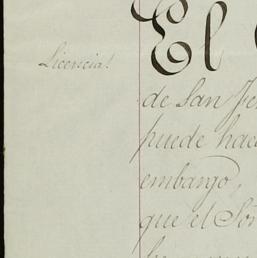 Licencia!
El
de San Fer
puede hace
embargo,
que el Señ